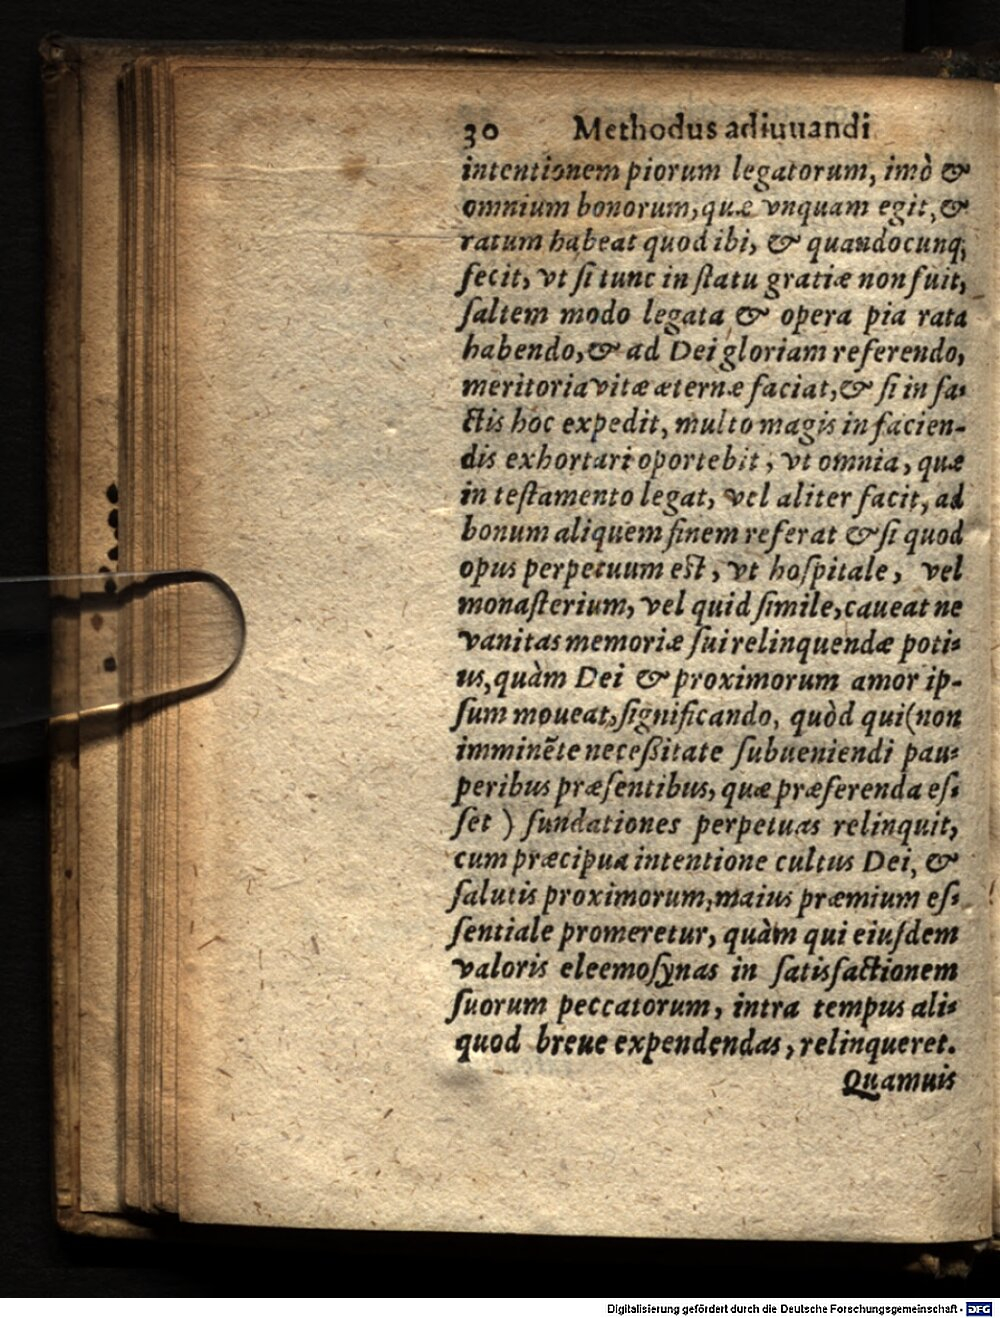 30 Methodus adiuuandi
intentionem piorum legatorum, imò &
omnium bonorum, quæ vnquam egit, &
ratum habeat quod ibi, & quandocunq;
fecit, vt ſi tunc in ſtatu gratiæ non fuit,
ſaltem modo legata & opera pia rata
habendo, & ad Dei gloriam referendo,
meritoria vitæ æternæ faciat, & ſi in fa-
ctis hoc expedit, multo magis in facien-
dis exhortari oportebit, vt omnia, quæ
in teſtamento legat, vel aliter facit, ad
bonum aliquem finem referat & ſi quod
opus perpetuum eſt, vt hoſpitale, vel
monaſterium, vel quid ſimile, caueat ne
vanitas memoriæ ſui relinquendæ poti-
us, quàm Dei & proximorum amor ip-
ſum moueat, ſignificando, quòd qui (non
imminẽte neceßitate ſubueniendi pau-
peribus præſentibus, quæ præferenda eſ-
ſet) fundationes perpetuas relinquit,
cum præcipua intentione cultus Dei, &
ſalutis proximorum, maius præmium eſ-
ſentiale promeretur, quàm qui eiuſdem
valoris eleemoſynas in ſatisfactionem
ſuorum peccatorum, intra tempus ali-
quod breue expendendas, relinqueret.
Quamuis
Digitalisierung gefördert durch die Deutsche Forschungsgemeinschaft - DFG